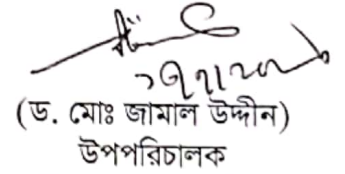 (ড. মোঃ জামাল উদ্দীন)
উপপরিচালক